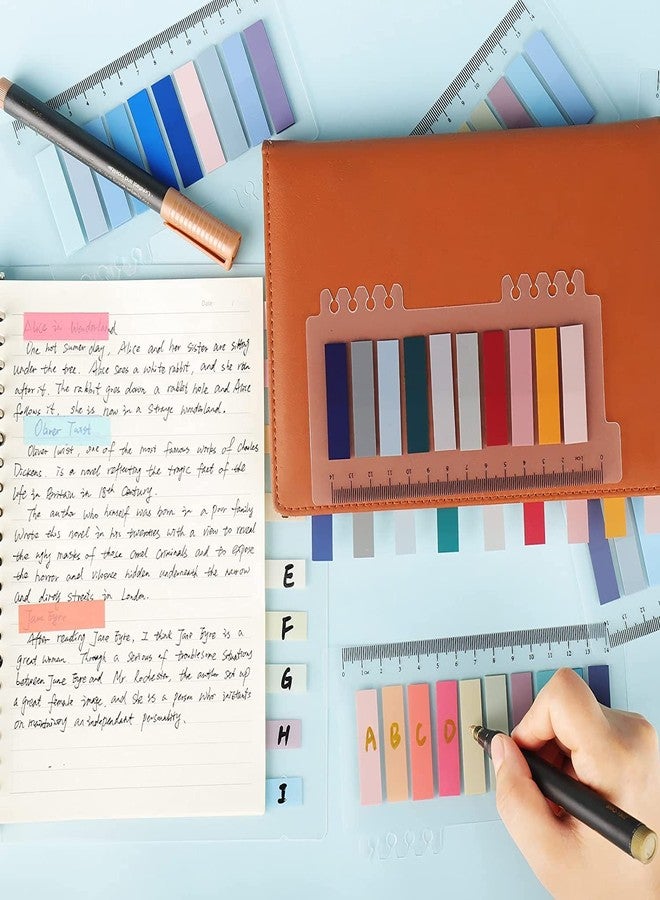 Date:
Alice in Wonderland
One hot sumer day, Alice and her sister are sitting
under the tree. Alice sees a white rabbit, and she run
after it. The rabbit goes down a rabbit hole and Alice
follows it, she is now in a strange wonderland.
Oliver Twist
Oliver Twist, one of the most famous works of Charles
Dickens. is a novel reflecting the tragic feet of the
life in Britain in 18th Century.
The author who himself was born in a poor family
wrote this novel in his twenties with a view to reveal
the ugly masks of those cruel criminals and to expose
the horror and violence hidden underneath the narrow
and dirty streets in London.
Jane Eyre
After reading Jane Eyre, I think Jane Eyre is a
great woman. Through a serious of troublesome situations
between Jane Eyre and Mr Rochester, the author set up
a great female image, and she is a person who insistants
on maintaining an independant personality.
E
F
G
H
I
14 13 12 11 10 9 8 7 6 5 4 3 2 1cm 0
0 1cm 2 3 4 5 6 7 8 9 10 11 12 13 14
A B C D